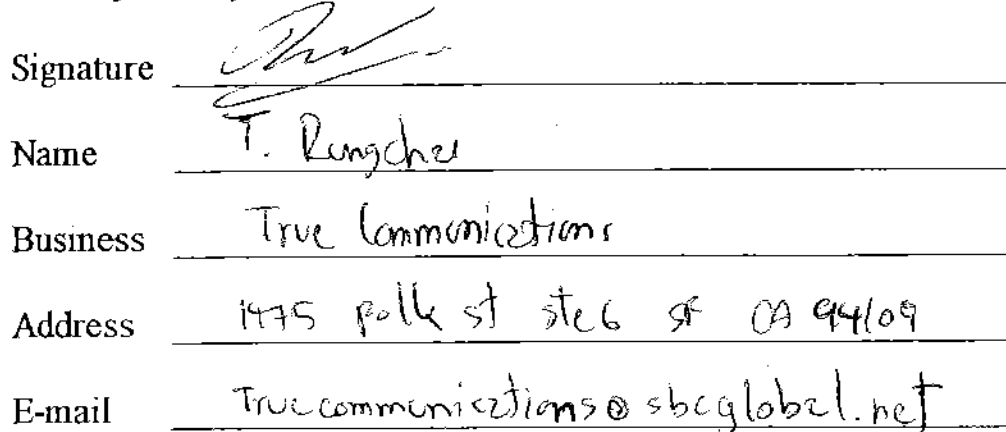 Signature
Name T. Rungchai
Business True Communications
Address 1475 polk st ste 6 SF CA 94109
E-mail Truecommunications@sbcglobal.net